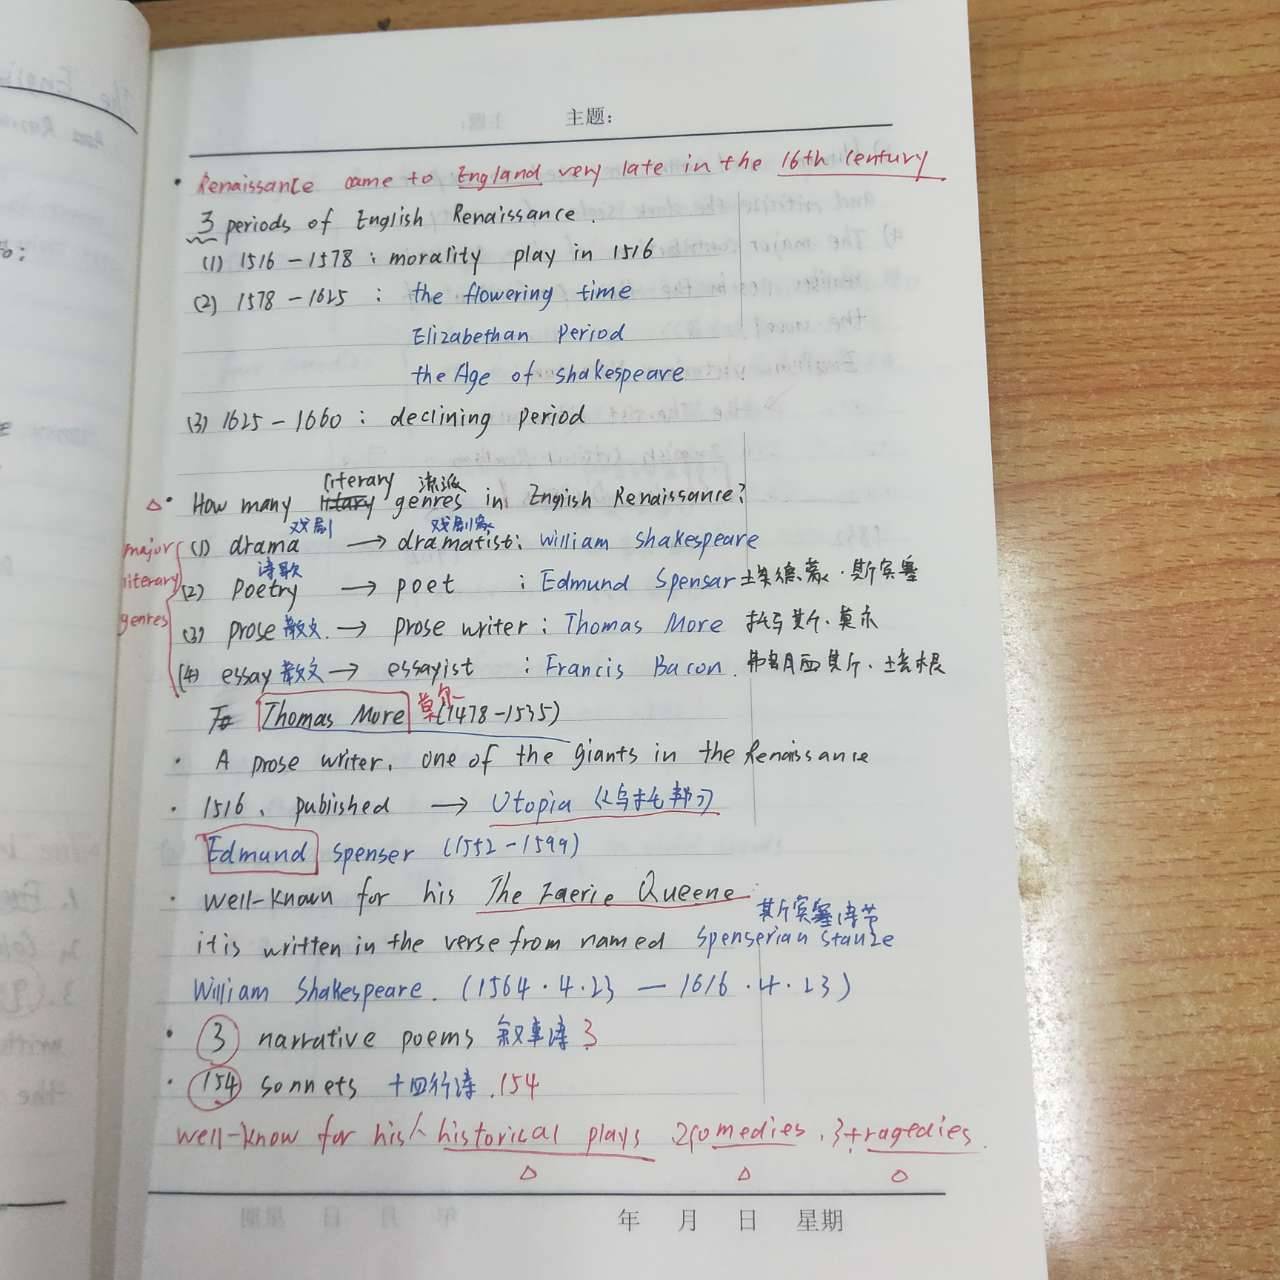 主题：
· Renaissance came to England very late in the 16th century
3 periods of English Renaissance.
(1) 1516 – 1578 : morality play in 1516
(2) 1578 – 1625 : the flowering time
Elizabethan Period
the Age of Shakespeare
(3) 1625 – 1660 : declining period
literary 流派
△ · How many genres in English Renaissance?
戏剧 戏剧家
major literary genres
(1) drama → dramatist: William Shakespeare
诗歌
(2) Poetry → poet : Edmund Spensar 埃德蒙·斯宾塞
(3) prose 散文 → prose writer : Thomas More 托马斯·莫尔
(4) essay 散文 → essayist : Francis Bacon. 弗朗西斯·培根
Thomas More 莫尔 (1478-1535)
· A prose writer, one of the giants in the Renaissance
· 1516, published → Utopia 《乌托邦》
Edmund Spenser (1552-1599)
· well-known for his The Faerie Queene
斯宾塞诗节
it is written in the verse from named Spenserian Stanze
William Shakespeare. (1564·4·23 — 1616·4·23)
· 3 narrative poems 叙事诗 3
· 154 sonnets 十四行诗 .154
well-know for his historical plays 2comedies. 3tragedies.
△ △ △
年 月 日 星期